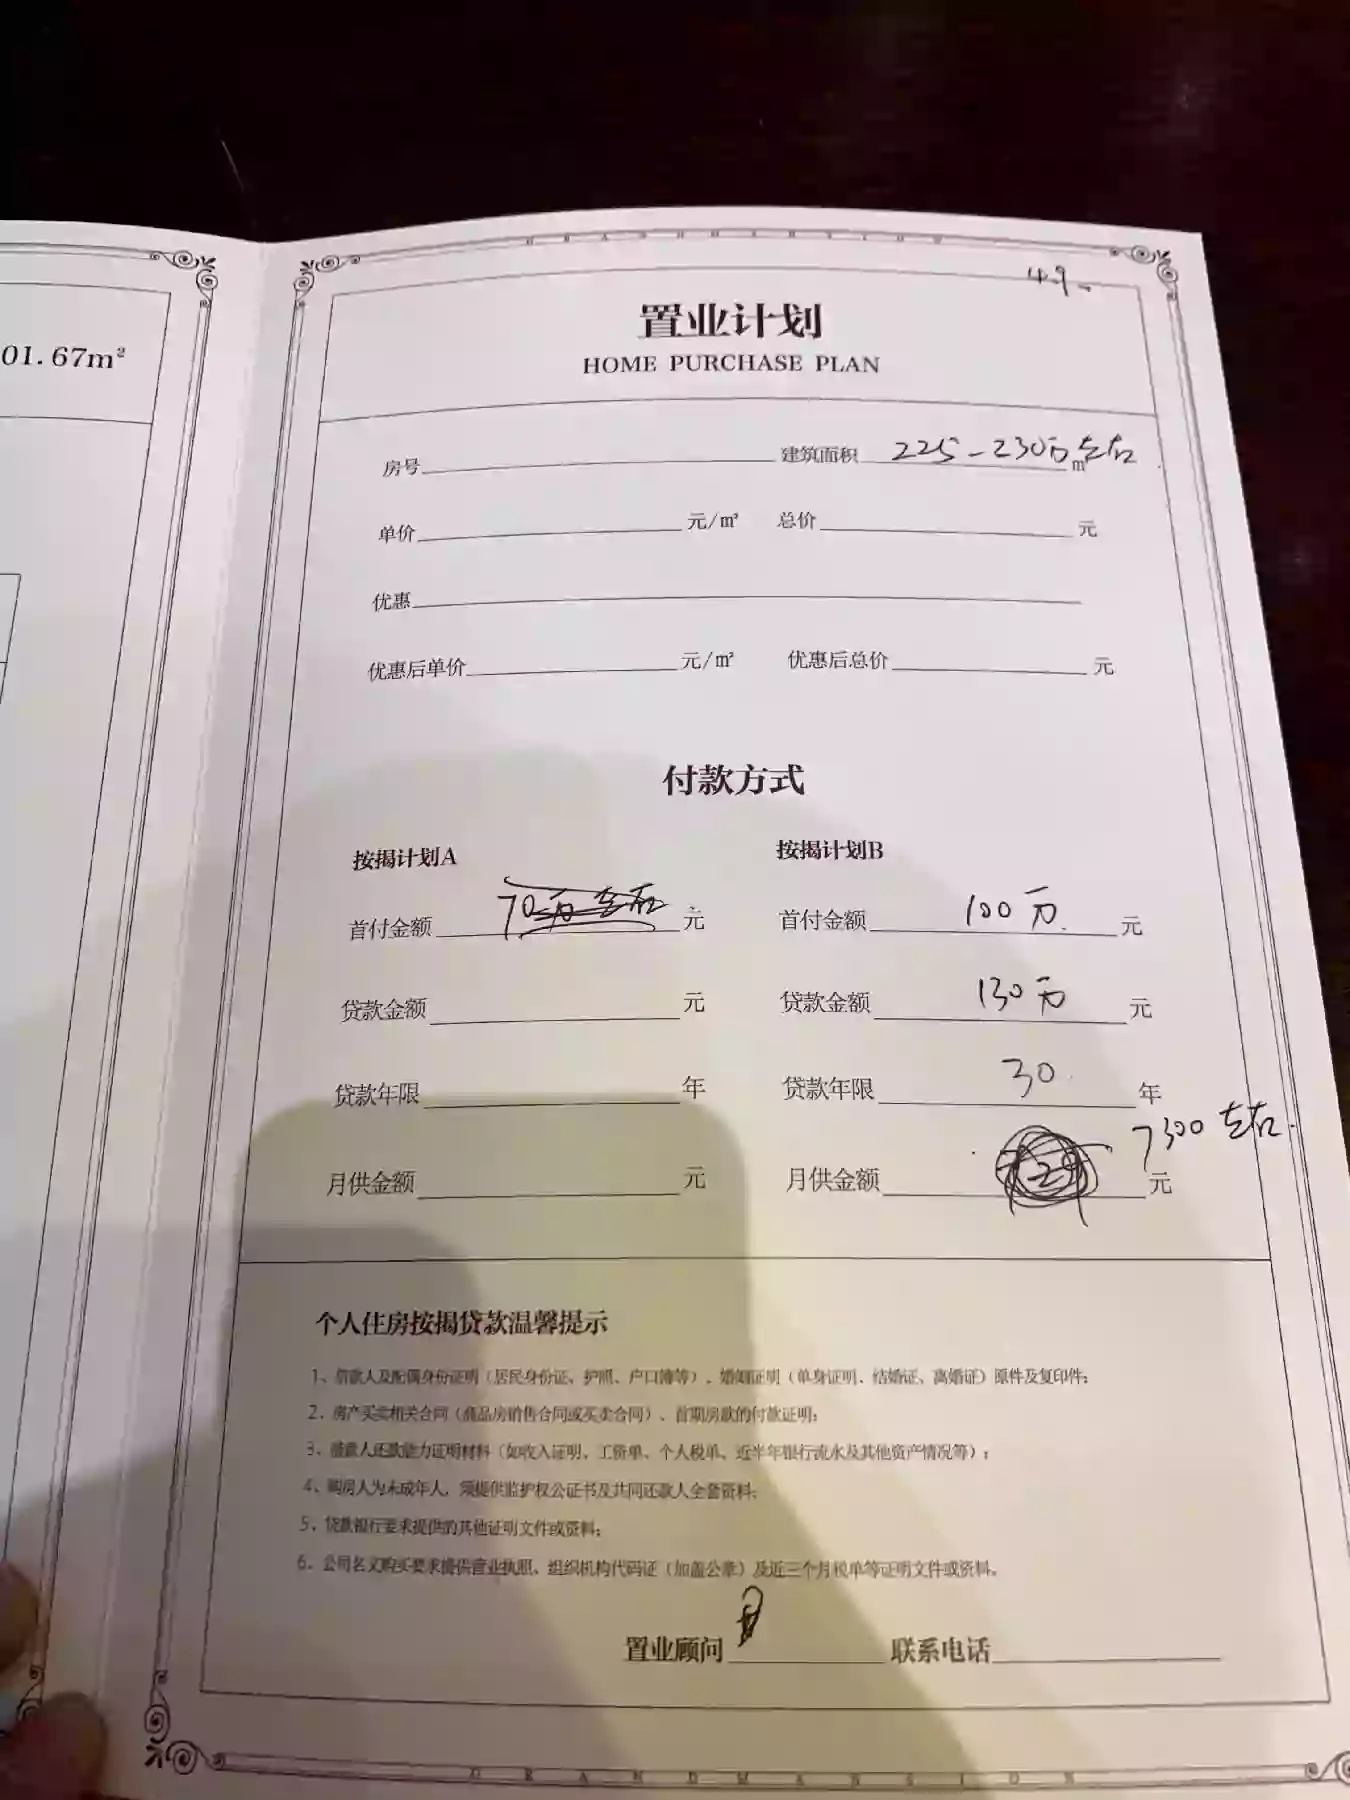 01.67m²
GRANDMANSION
4.9.
置业计划
HOME PURCHASE PLAN
房号 建筑面积 225-230万左右 m²
单价 元/m² 总价 元
优惠
优惠后单价 元/m² 优惠后总价 元
付款方式
按揭计划A 按揭计划B
首付金额 70万左右 元 首付金额 100万 元
贷款金额 元 贷款金额 130万 元
贷款年限 年 贷款年限 30 年
月供金额 元 月供金额 元 7300左右.
个人住房按揭贷款温馨提示
1、借款人及配偶身份证明（居民身份证、护照、户口簿等）、婚姻证明（单身证明、结婚证、离婚证）原件及复印件；
2、房产买卖相关合同（商品房销售合同或买卖合同）、首期房款的付款证明；
3、借款人还款能力证明材料（如收入证明、工资单、个人税单、近半年银行流水及其他资产情况等）；
4、购房人为未成年人，须提供监护权公证书及共同还款人全套资料；
5、贷款银行要求提供的其他证明文件或资料；
6、公司名义购买要求提供营业执照、组织机构代码证（加盖公章）及近三个月税单等证明文件或资料。
置业顾问 联系电话
GRANDMANSION